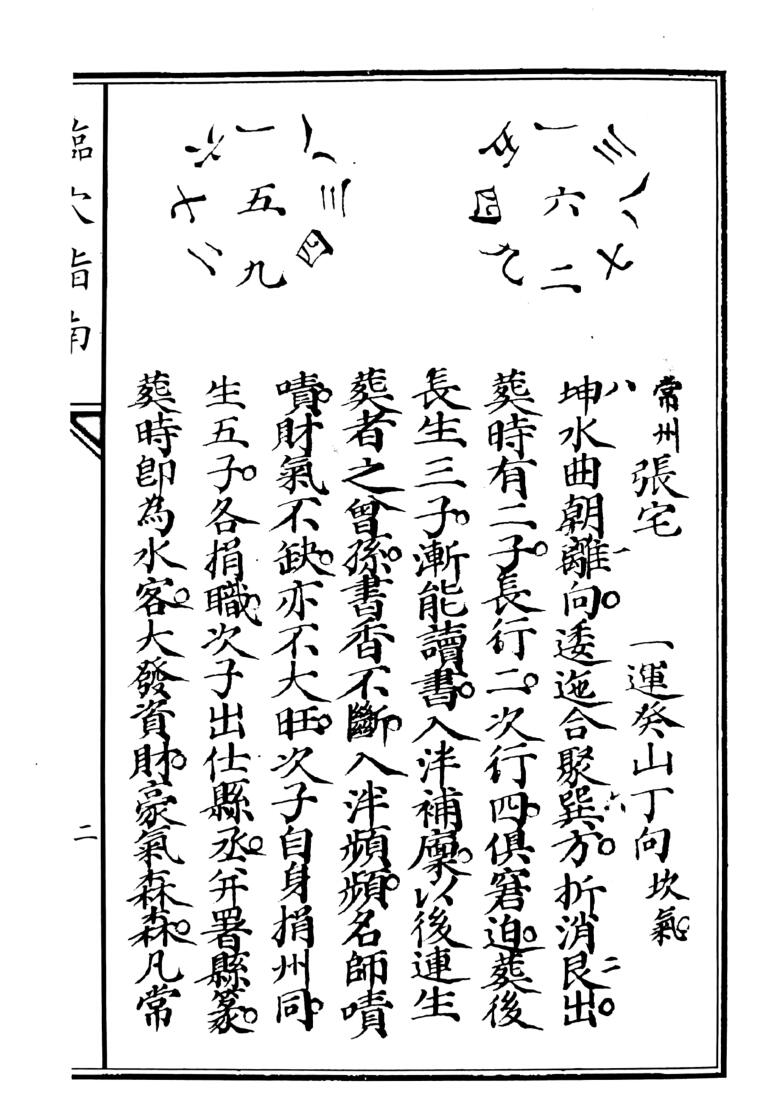 五 一 三
四 六 八
九 二 七
六 一 八
七 五 三
二 九 四
常州張宅 一運癸山丁向坎氣。
坤八水曲朝離一向。逶迤合聚巽六方。折消艮二出。
葬時有二子。長行二。次行四。俱窘迫。葬後
長生三子。漸能讀書。入泮補廩。以後連生
葬者之曾孫。書香不斷。入泮頻頻。名師嘖
嘖。財氣不缺。亦不大旺。次子自身捐州同。
生五子。各捐職。次子出仕縣丞。并署縣篆。
葬時即為水客。大發資財。豪氣森森。凡常
臨穴指南
二